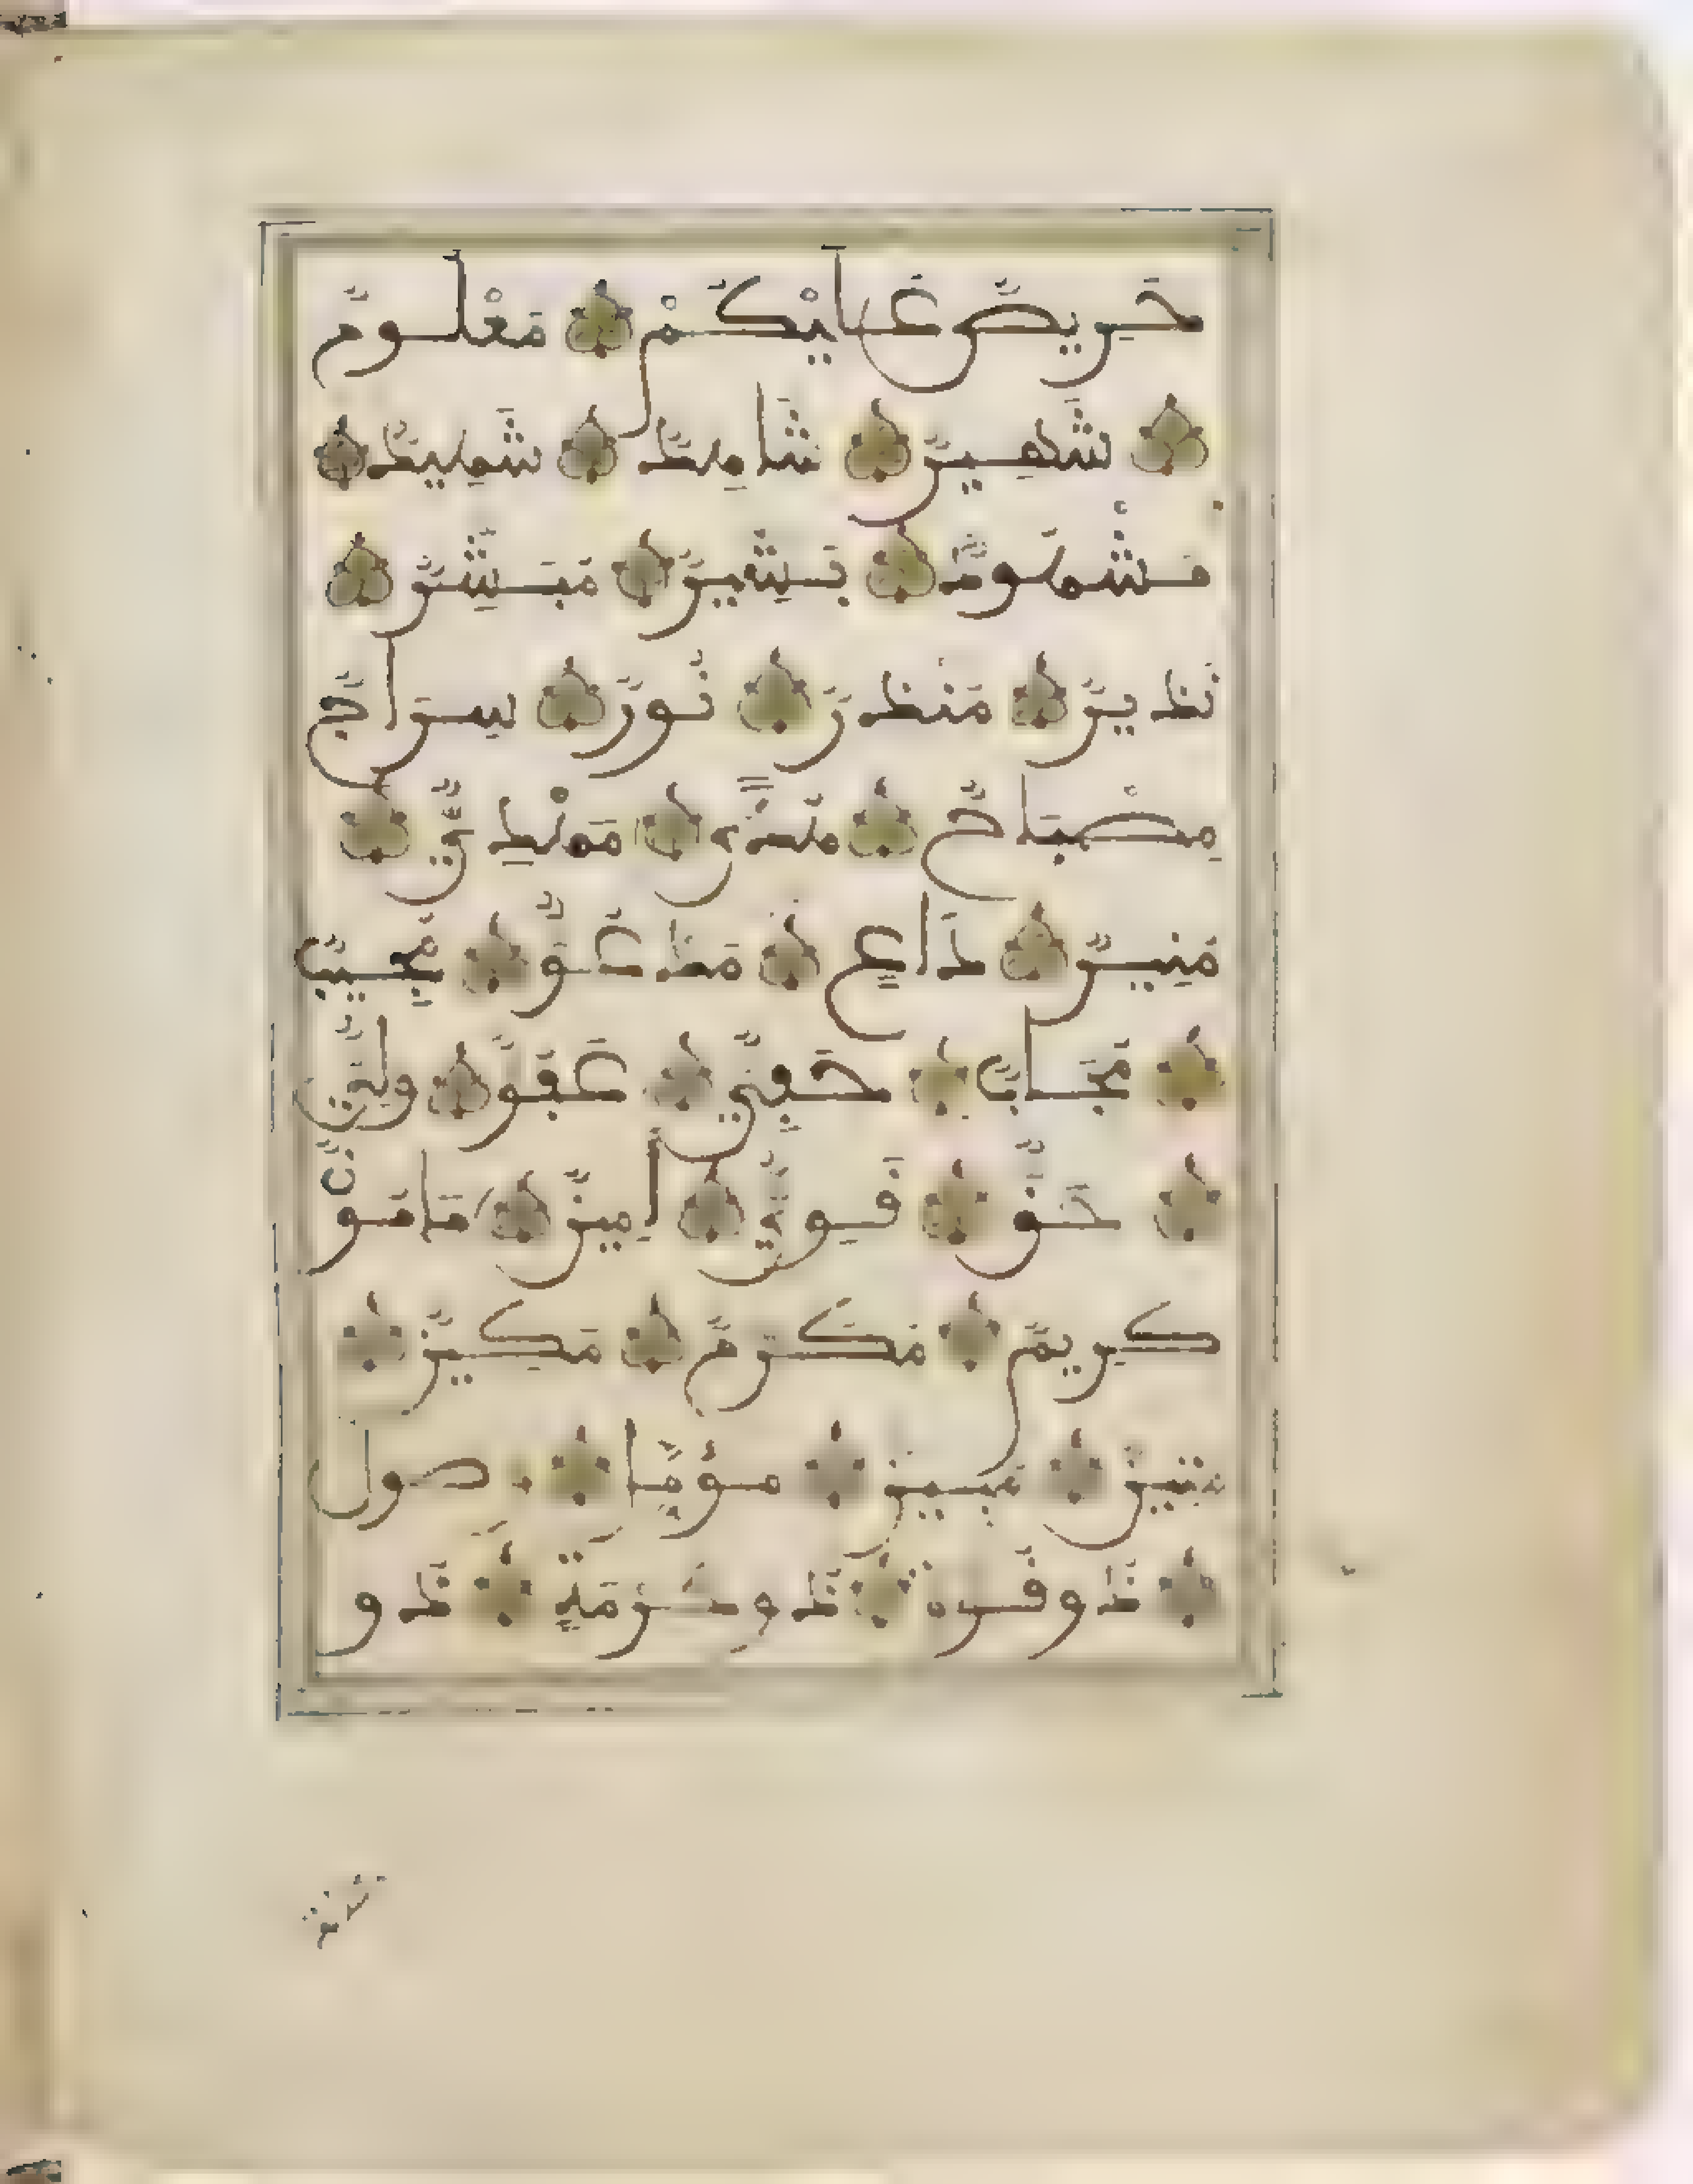 حَرِيصٌ عَلَيْكُمْ مَعْلُومٌ
شَهِيرٌ شَاهِدٌ شَهِيدٌ
مَشْهُودٌ بَشِيرٌ مُبَشِّرٌ
نَذِيرٌ مُنْذِرٌ نُورٌ سِرَاجٌ
مِصْبَاحٌ هُدًى مَهْدِيٌّ
مُنِيرٌ دَاعٍ مَدْعُوٌّ مُجِيبٌ
مُجَابٌ حَفِيٌّ عَفُوٌّ وَلِيٌّ
حَقٌّ قَوِيٌّ أَمِينٌ مَامُونٌ
كَرِيمٌ مُكَرَّمٌ مَكِينٌ
مَتِينٌ مُبِينٌ مُؤَمِّلٌ وَصُولٌ
ذُو قُوَّةٍ ذُو حُرْمَةٍ ذُو